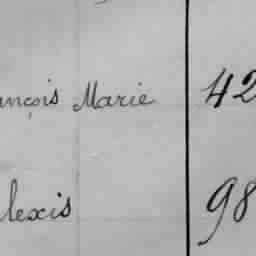 ançois Marie 42
lexis 98